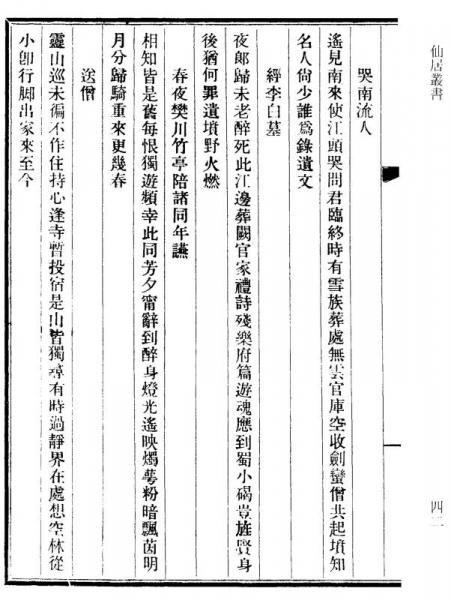 仙居叢書
哭南流人
遙見南來使江頭哭問君臨終時有雪族葬處無雲官庫空收劍蠻僧共起墳知
名人尙少誰爲錄遺文
經李白墓
夜郞歸未老醉死此江邊葬闕官家禮詩殘樂府篇遊魂應到蜀小碣豈旌賢身
後猶何罪遺墳野火燃
春夜樊川竹亭陪諸同年讌
相知皆是舊每恨獨遊頻幸此同芳夕甯辭到醉身燈光遙映燭蕚粉暗飄茵明
月分歸騎重來更幾春
送僧
靈山巡未徧不作住持心逢寺暫投宿是山皆獨尋有時過靜界在處想空林從
小卽行脚出家來至今
四二